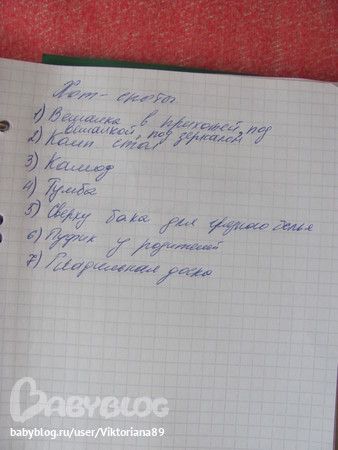 Хот-споты
1) Вешалка в прихожей, под
вешалкой, под зеркалом
2) Комп. стол
3) Комод
4) Тумба
5) Сверху бака для грязного белья
6) Пуфик у родителей
7) Гладильная доска
BABYBLOG
babyblog.ru/user/Viktoriana89